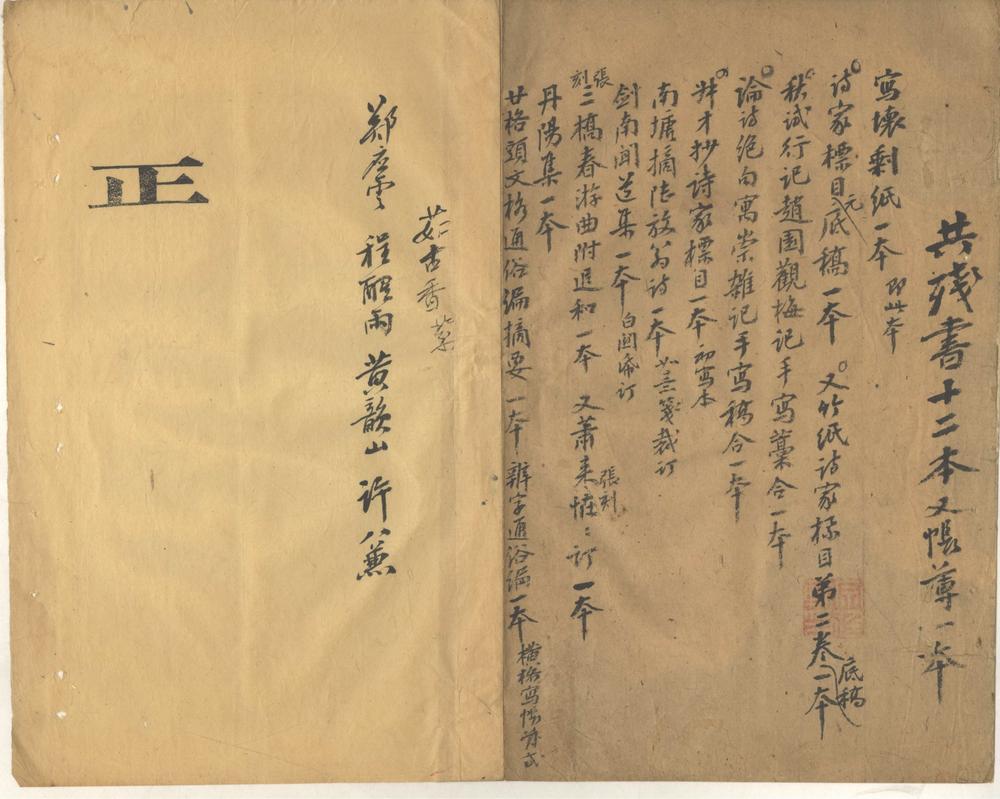 共殘書十二本又帳薄一本
寫壞剩紙一本 即此本
詩家標目元底稿一本 又竹紙詩家標目第二卷一本 底稿
秋試行記趙園觀梅記手寫藁合一本
論詩絕句寓崇雜記手寫稿合一本
抄詩家標目一本 初寫本
南塘摘陸放翁詩一本
剑南闻道集一本 白閒帋訂
張刻二橋春游曲附追和一本 又蕭来 張刻 一本
丹陽集一本
廿格頭文格通俗编摘要一本 辨字通俗编一本 橫格寫帳
茹古香
鄭 程醒雨 黄韻山 許八兼
正